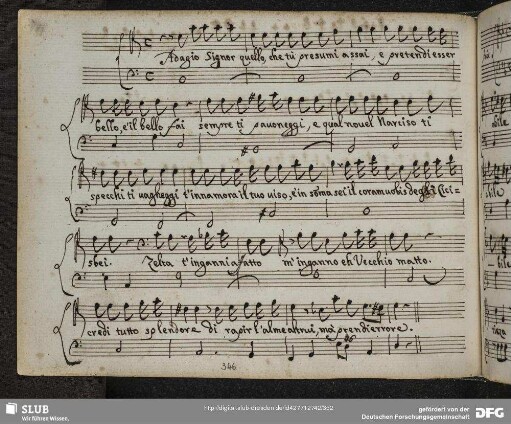 Adagio Signor quello, che tù presumi assai, e pretendi esser
bello, e'il bello fai sempre ti pavoneggi, e qual novel Narciso ti
specchi ti vagheggi t'innamora il tuo viso, e in somma sei il coram vobis degl'
sbei. Zelta t'inganni affatto m'inganno eh Vecchio matto.
credi tutto splendore di rapir l'alme altrui, mà prendi errore.
346
SLUB
Wir führen Wissen.
gefördert von der
Deutschen Forschungsgemeinschaft
DFG